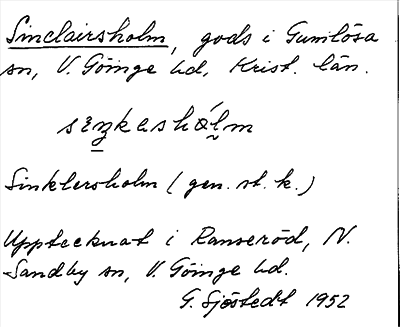 Sinclairsholm, gods i Gumlösa
sn, V. Göinge hd, Krist. län.
sɪŋkəshɑ́l̰m
Sinklersholm (gen. st. k.)
Upptecknat i Ranseröd, N.
Sandby sn, V. Göinge hd.
G. Sjöstedt 1952